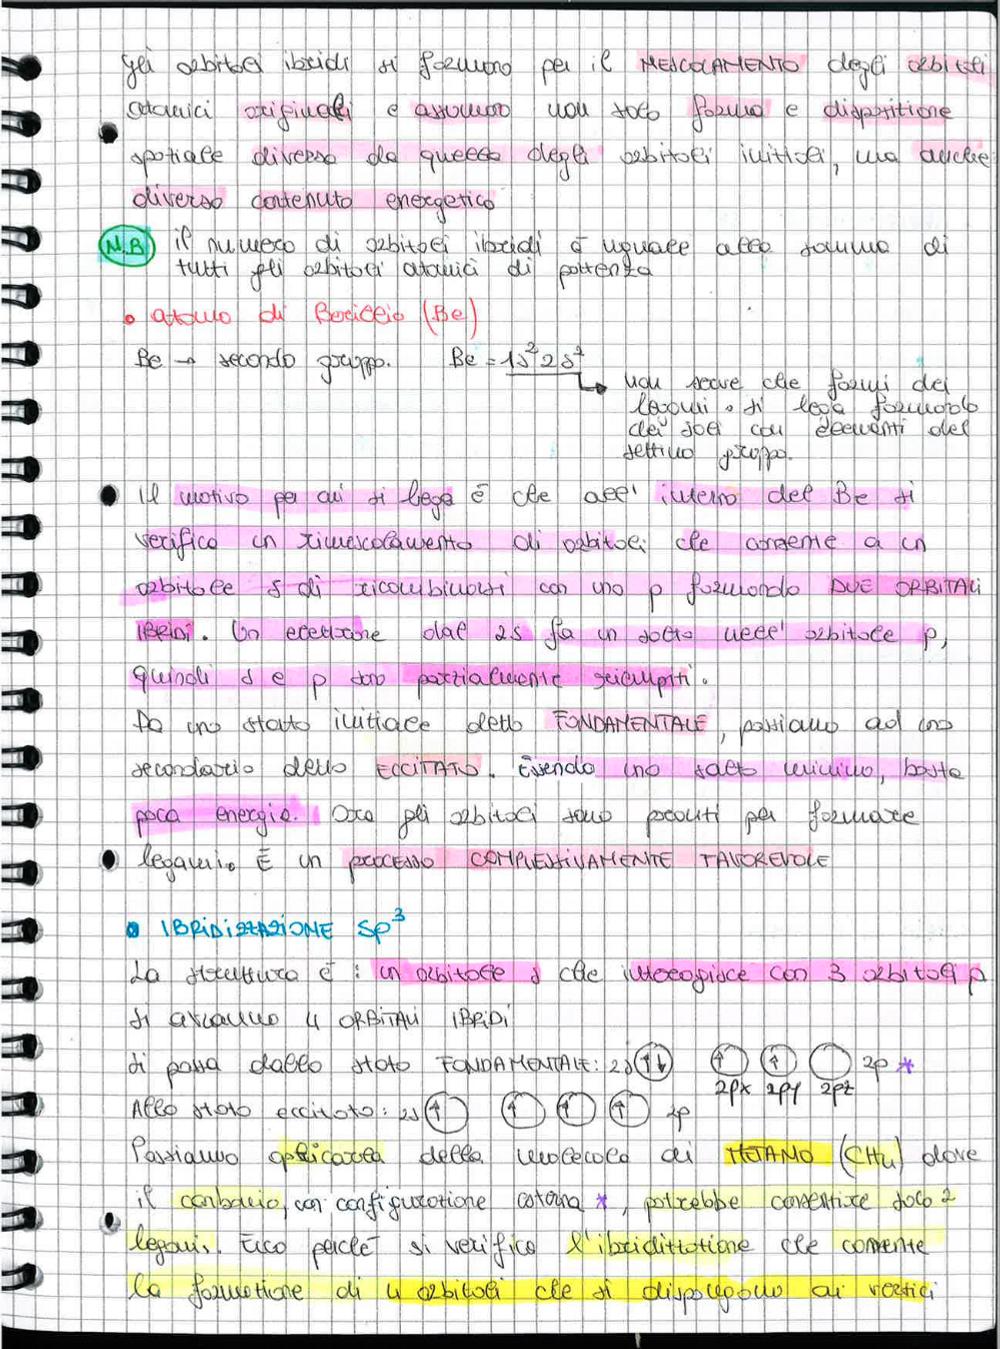 Gli orbitali ibridi si formano per il MESCOLAMENTO degli orbitali
atomici originali e assumono non solo forma e disposizione
spaziale diversa da quella degli orbitali iniziali, ma anche
diverso contenuto energetico
N.B il numero di orbitali ibridi è uguale alla somma di
tutti gli orbitali atomici di partenza
• atomo di Berillio (Be)
Be → secondo gruppo. Be = 1s² 2s²
non serve che formi dei
legami. si lega formando
dei sali con elementi del
settimo gruppo.
• Il motivo per cui si lega è che all' interno del Be si
verifica un rimescolamento di orbitali che consente a un
orbitale s di ricombinarsi con uno p formando DUE ORBITALI
IBRIDI. Un elettrone dal 2s fa un salto nell' orbitale p,
quindi s e p sono parzialmente riempiti.
Da uno stato iniziale detto FONDAMENTALE, passiamo ad uno
secondario detto ECCITATO. Essendo uno salto minimo, basta
poca energia. Ora gli orbitali sono pronti per formare
• legami. È un PROCESSO COMPLESSIVAMENTE FAVOREVOLE
• IBRIDIZZAZIONE sp³
La struttura è: un orbitale s che interagisce con 3 orbitali p
Si avranno 4 ORBITALI IBRIDI
Si passa dallo stato FONDAMENTALE: 2s ↑↓ ↑ ↑ 2p *
2px 2py 2pz
Allo stato eccitato: 2s ↑ ↑ ↑ ↑ 2p
Passiamo della molecola di METANO (CH₄) dove
il carbonio, con configurazione esterna *, potrebbe consentire solo 2
legami. Ecco perché si verifica l'ibridizzazione che consente
la formazione di 4 orbitali che si dispongono ai vertici